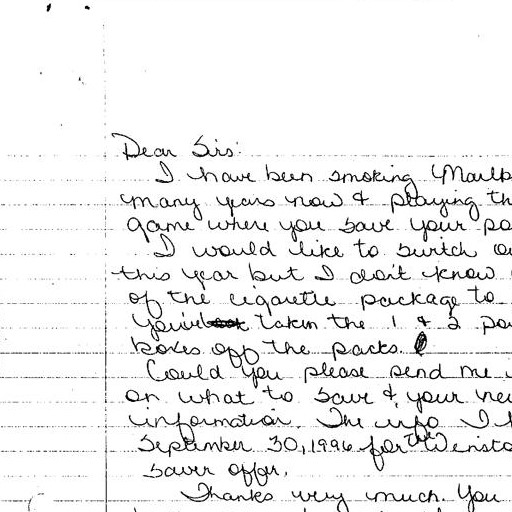 Dear Sirs:
I have been smoking Marlb
many years now & playing th
game where you save your pa
I would like to switch ov
this year but I don't know
of the cigarette package to
You've taken the 1 & 2 po
boxes off the packs.
Could you please send me
on what to save & your ne
information. The info I h
September 30, 1996 for the Winsto
saver offer.
Thanks very much. You